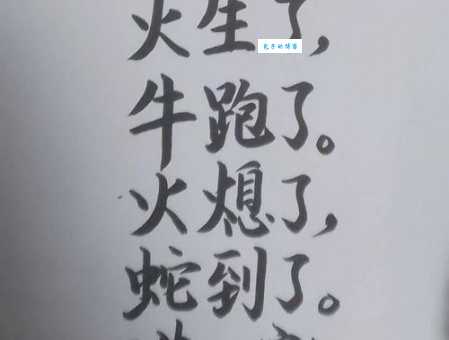 火生了,
牛跑了。
火熄了,
蛇到了。